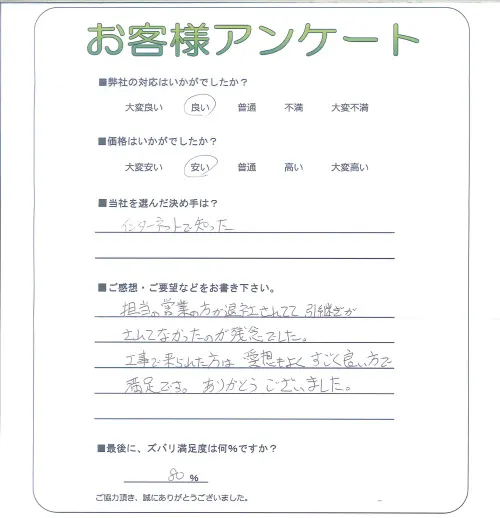 お客様アンケート
■弊社の対応はいかがでしたか？
大変良い 良い 普通 不満 大変不満
■価格はいかがでしたか？
大変安い 安い 普通 高い 大変高い
■当社を選んだ決め手は？
インターネットで知った
■ご感想・ご要望などをお書き下さい。
担当の営業の方が退社されてて 引継ぎが
されてなかったのが残念でした。
工事で来られた方は 愛想もよく すごく良い方で
満足です。 ありがとうございました。
■最後に、ズバリ満足度は何％ですか？
80 ％
ご協力頂き、誠にありがとうございました。